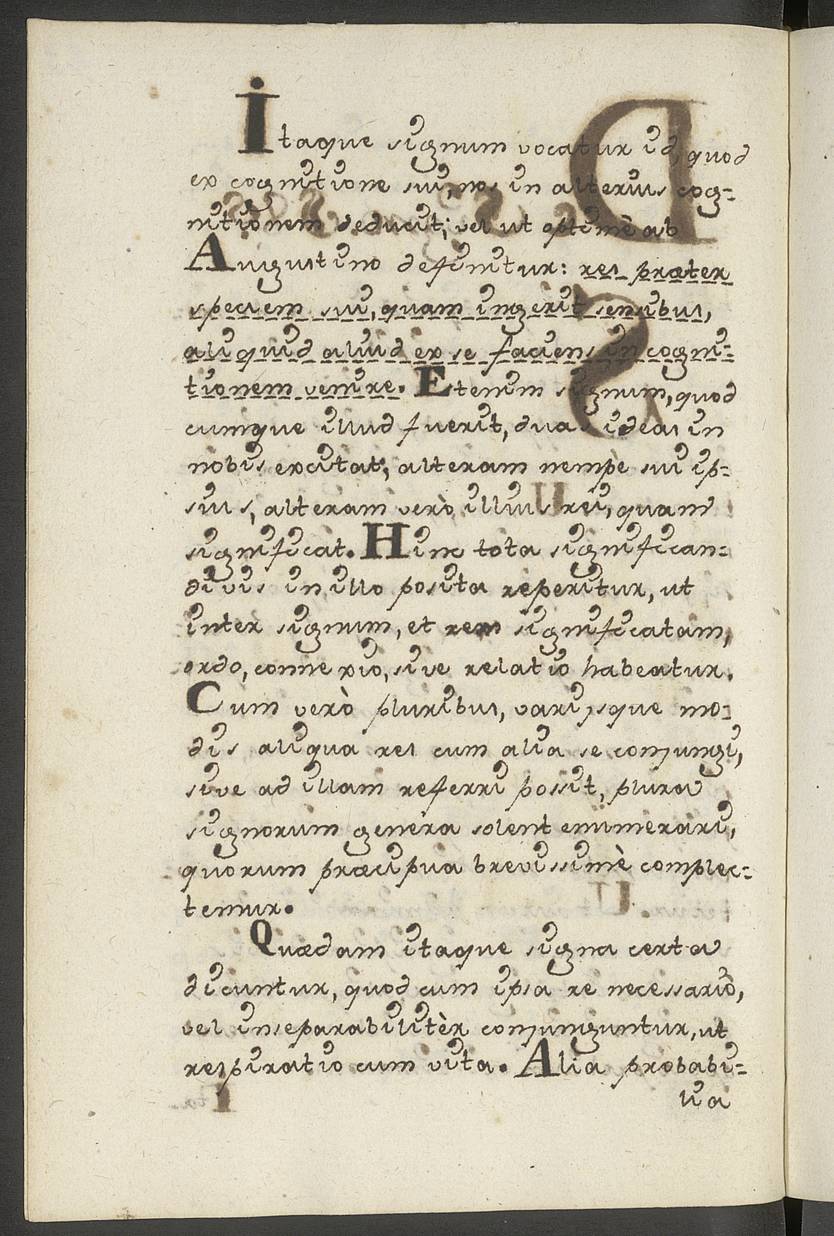 Itaque signum vocatur id, quod
ex cognitione sui, nos in alterius cog=
nitionem deducit; vel ut optimè ab
Augustino definitur: res præter
speciem sui, quam ingerit sensibus,
aliquid aliud ex se faciens in cogni=
tionem venire. Etenim signum, quod
cumque illud fuerit, duas ideas in
nobis excitat, alteram nempè sui ip=
sius, alteram verò illius rei, quam
significat. Hinc tota significan=
di vis in illo posita reperitur, ut
intèr signum, et rem significatam,
ordo, connexio, sive relatio habeatur.
Cum verò pluribus, varijsque mo=
dis aliqua res cum alia se conjungi,
sive ad illam referri possit, plura
signorum genera solent enumerari,
quorum præcipua brevissimè complec=
temur.
Quædam itaque signa certa
dicuntur, quod cum ipsa re necessario,
vel inseparabilitèr conjunguntur, ut
respiratio cum vita. Alia probabi=
lia